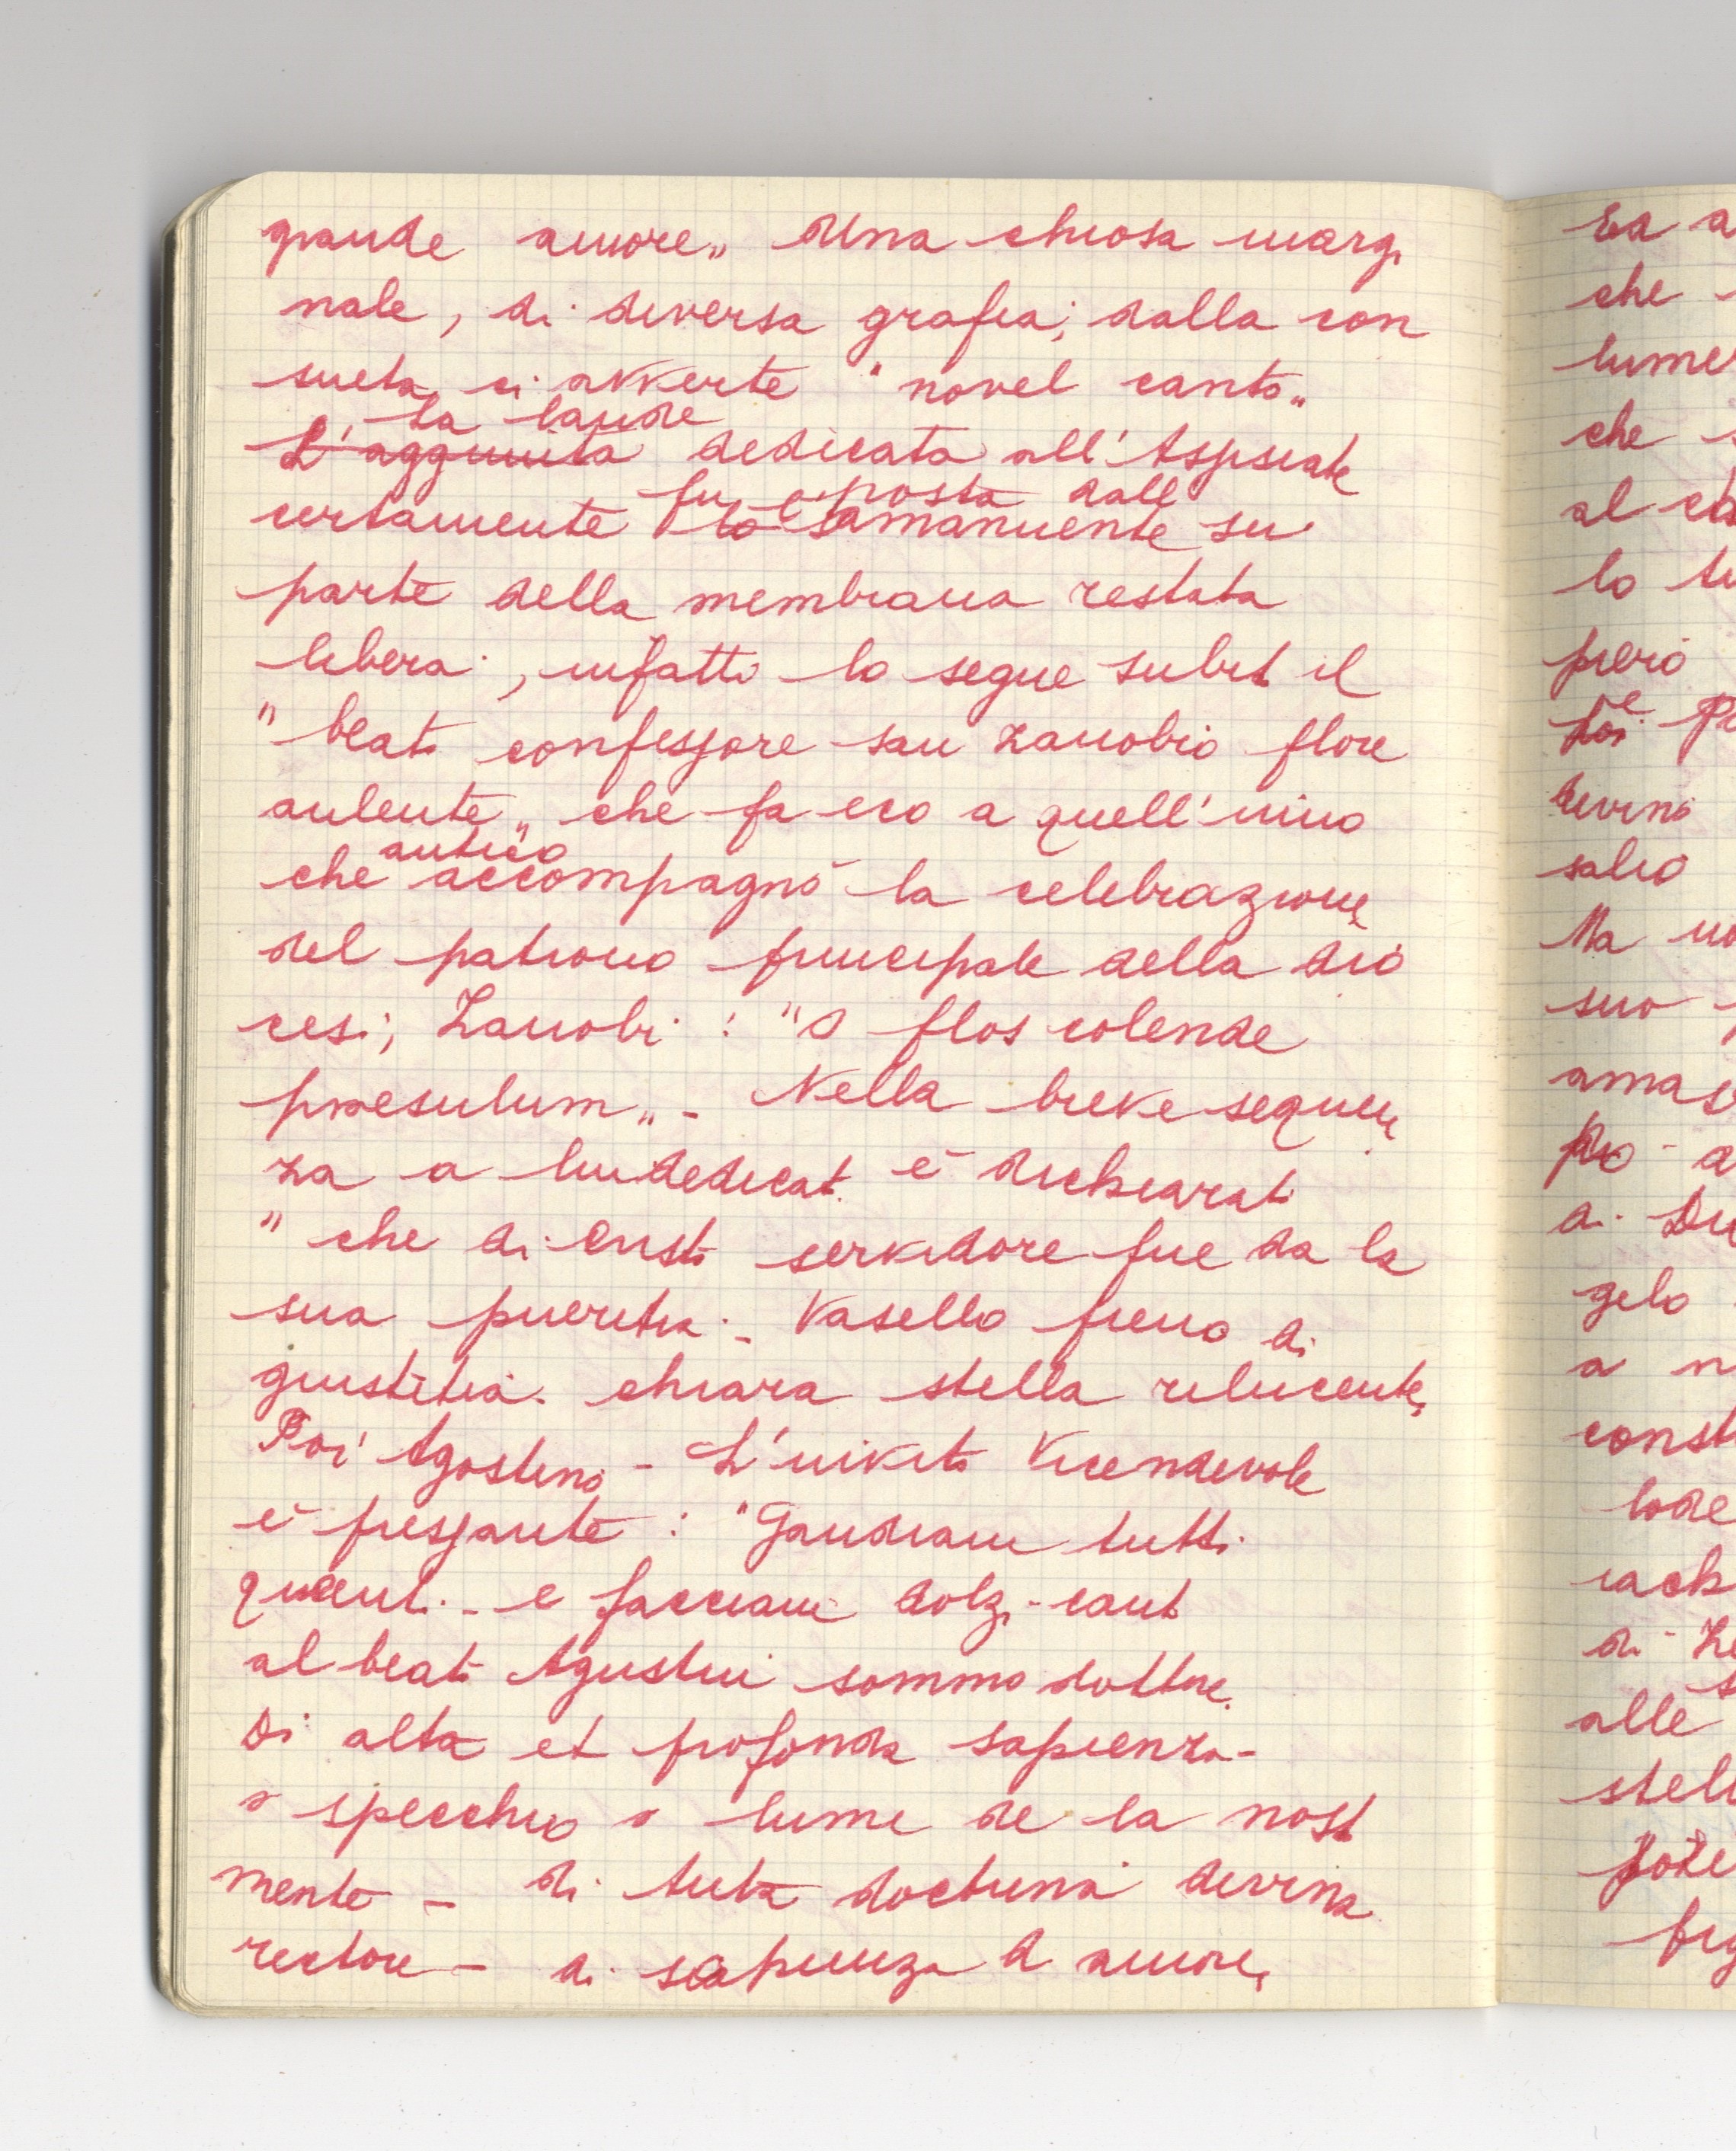 grande amore„ Una chiosa margi
nale, di diversa grafia, dalla con
sueta, ci avverte "novel canto„
La laude
L'aggiunta dedicata all'
fu apposta dall
certamente lo amanuense su
parte della membrana restata
libera, infatti lo segue subito il
"beato confessore san Zanobio flore
aulente„ che fa eco a quell'inno
antico
che accompagnò la celebrazione
del patrono principale della dio
cesi, Zanobi: "O flos colende
praesulum„ - Nella breve sequen
za a lui dedicata è dichiarato
"che di Cristo servidore fue da la
sua pueritia - Vasello pieno di
giustitia. chiara stella rilucente,
Poi Agostino - L'invito vicendevole
è pressante: "Gaudiam tutti
quanti - e facciam dolzi canti
al beato Agustin sommo dottore
Di alta et profonda sapienza -
o specchio o lume de la nostra
mente - di tutta doctrina divina
rectore - di sapienza d amore,
Ed a
che
lume
che
al ca
lo tu
e
divino
salio
Ma no
suo
amas
a
di Du
gelo
a n
const
lode
di
alle
stell